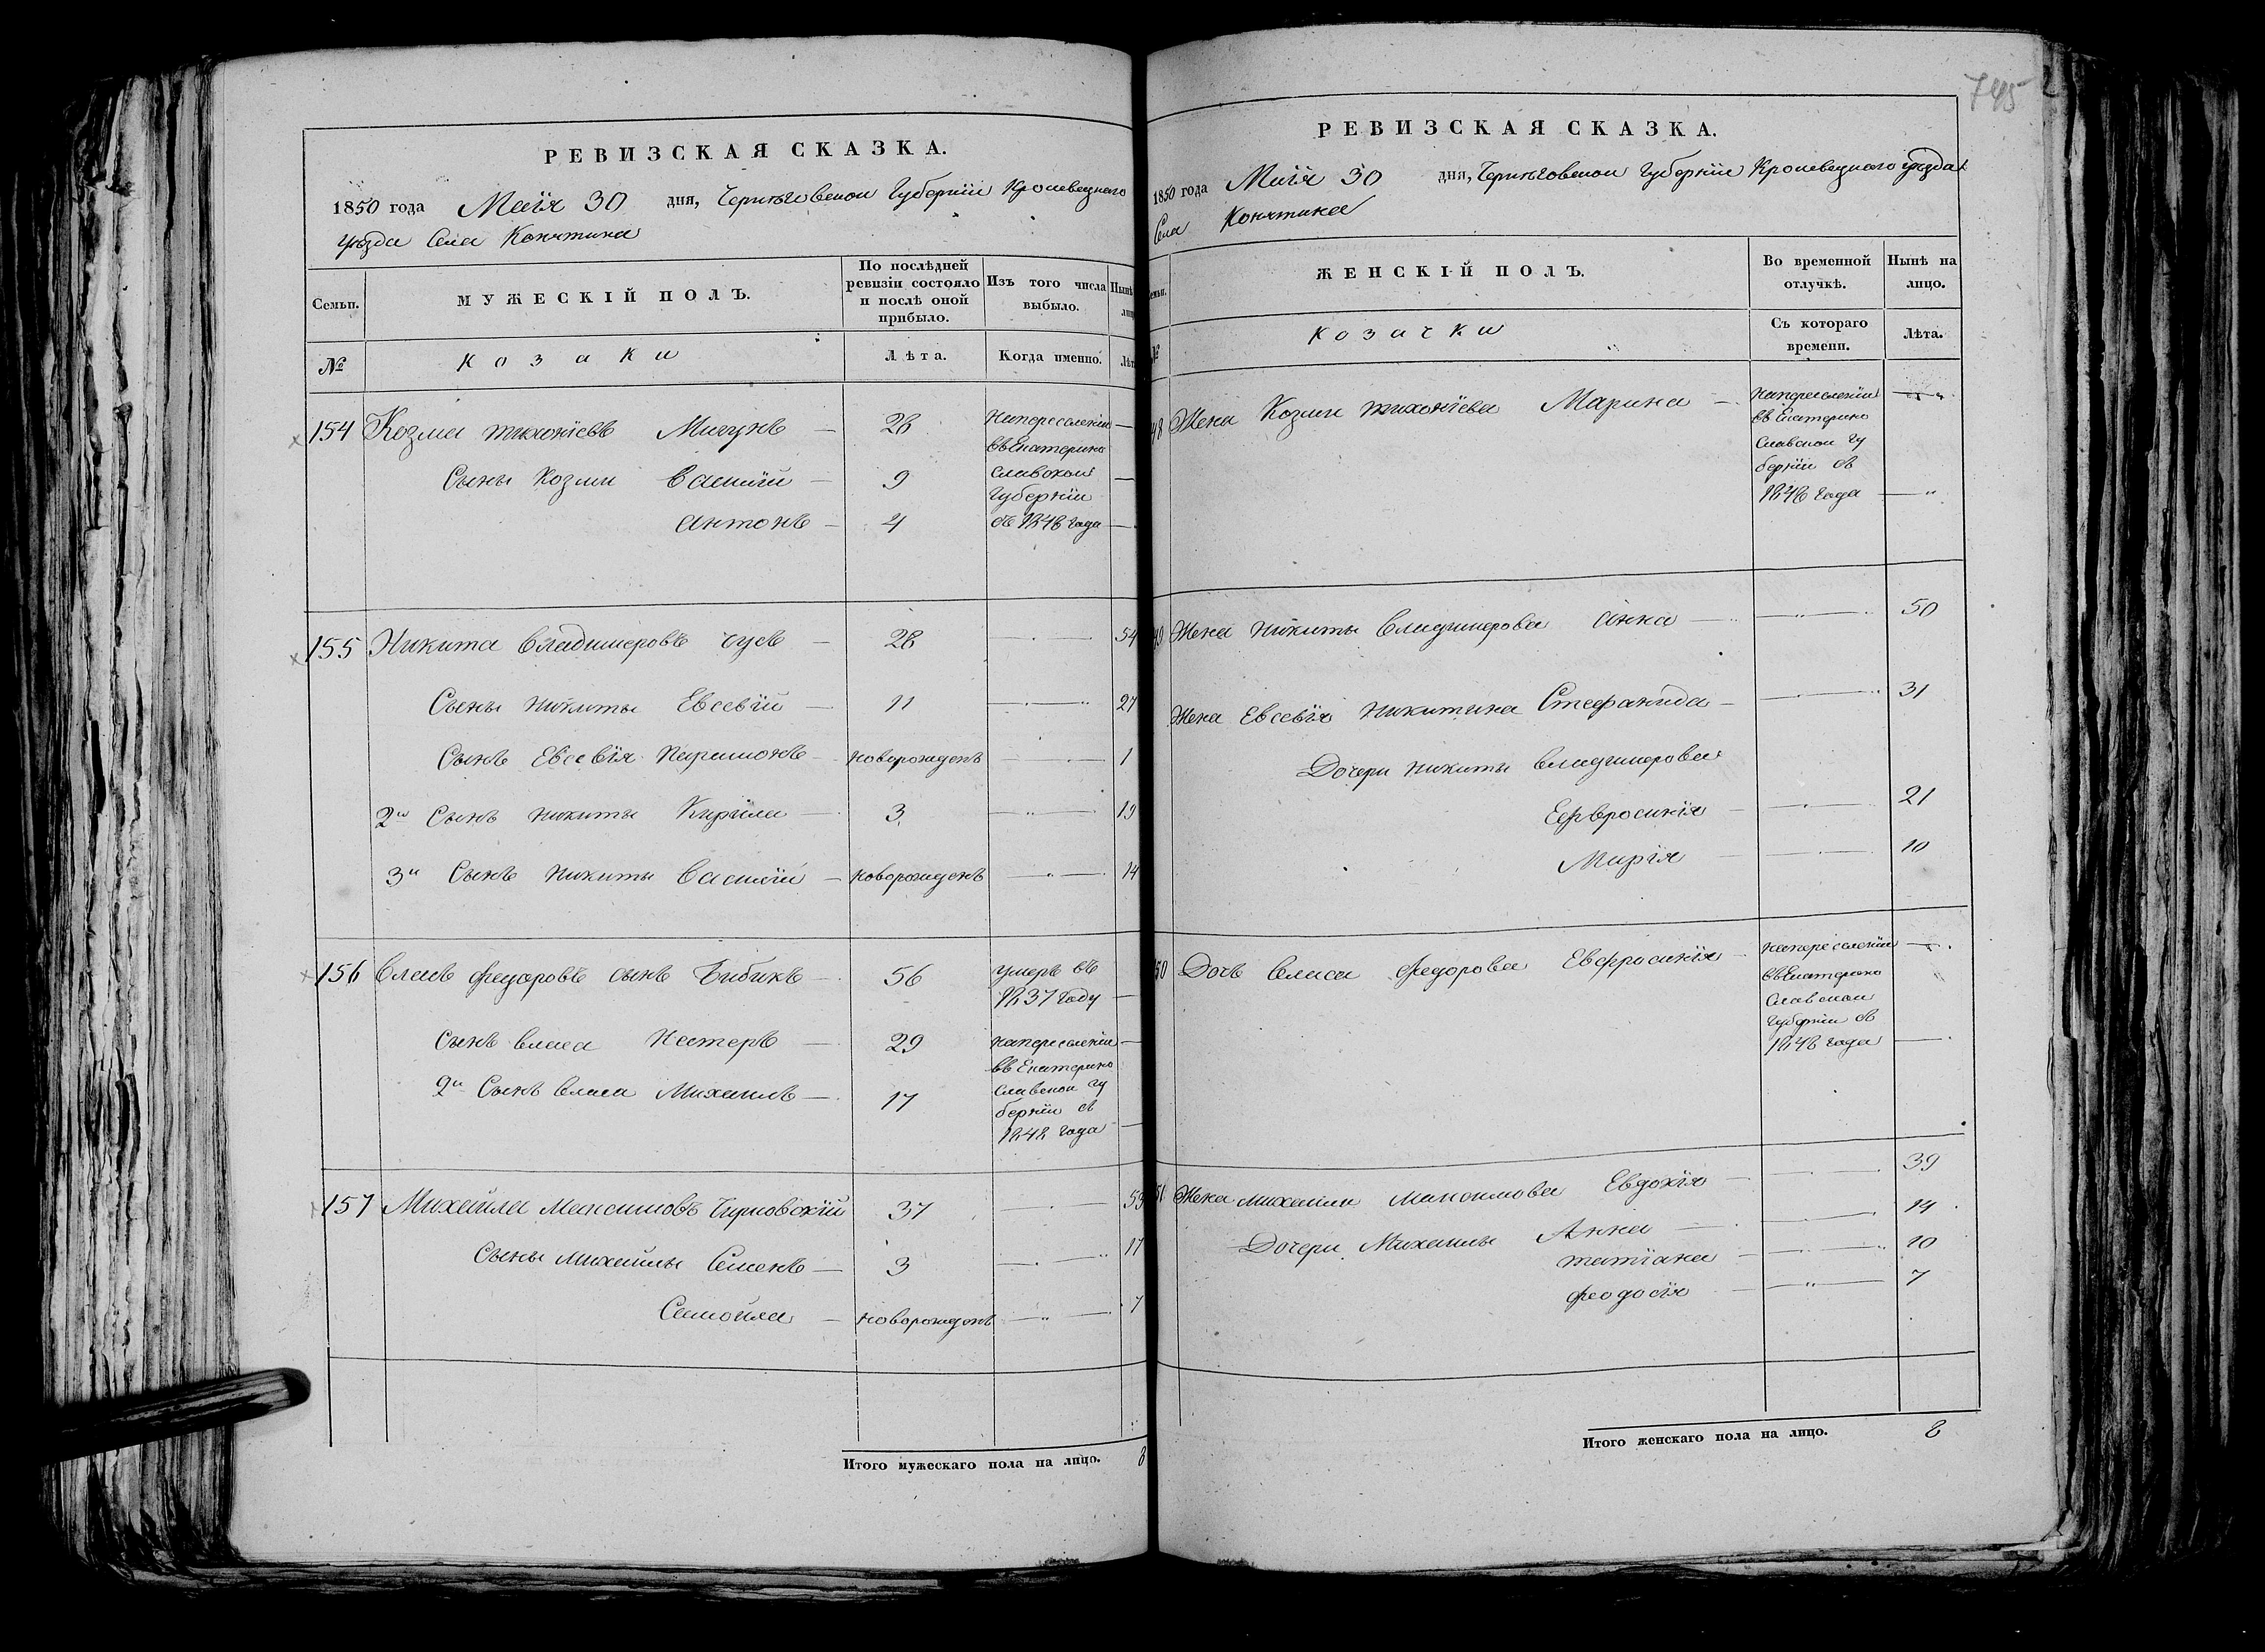 РЕВИЗСКАЯ СКАЗКА.
1850 года Маія 30 дня, Черниговской Губерніи Кролевецкого
уѣзда Села Конятина
Семьи.
МУЖЕСКІЙ ПОЛЪ.
По послѣдней ревизіи состояло и послѣ оной прибыло.
Изъ того числа выбыло.
Нынѣ
№
Козаки
Лѣта.
Когда именно.
154 Козма Тихоніевъ 28 На переселеніи
въ Екатерино
Сыны Козмы Василій 9 славской
Губерніи
Антонъ 4 съ 1848 года
155 Никита Владимеровъ Гусъ 28 54
Сыны Никиты Евсевій 11 27
Сынъ Евсевія Парамонъ новорожденъ 1
2й Сынъ Никиты Кирила 3 19
3й Сынъ Никиты Василій новорожденъ 14
156 Власъ Федоровъ сынъ Бибикъ 56 умеръ въ
1837 году
Сынъ Власа Нестеръ 29 на переселеніи
въ Екатерино
2й Сынъ Власа Михаилъ 17 славской гу
берніи съ
1848 года
157 Михайла Максимовъ 37 53
Сыны Михайлы Семенъ 3 17
Самойла новорожденъ 7
Итого мужескаго пола на лицо. 8
745
РЕВИЗСКАЯ СКАЗКА.
1850 года Маія 30 дня, Черниговской Губерніи Кролевецкого уѣзда
Села Конятина
ЖЕНСКІЙ ПОЛЪ.
Во временной отлучкѣ.
Нынѣ на лицо.
№
Козачки
Съ котораго времени.
Лѣта.
Жена Козмы Тихоніева Марина на переселеніи
въ Екатерино
славской гу
берніи съ
1848 года
Жена Никиты Владимерова Анна 50
Жена Евсевія Никитина Стефанида 31
Дочери Никиты Владимерова
Ефвросинія 21
Марія 10
50 Дочь Власа Федорова Евфросинія на переселеніи
въ Екатерино
славской
губерніи съ
1848 года
51 Жена Михаилы Максимова Евдокія 39
Дочери Михаилы Анна 14
Татіана 10
Феодосія 7
Итого женскаго пола на лицо. 8